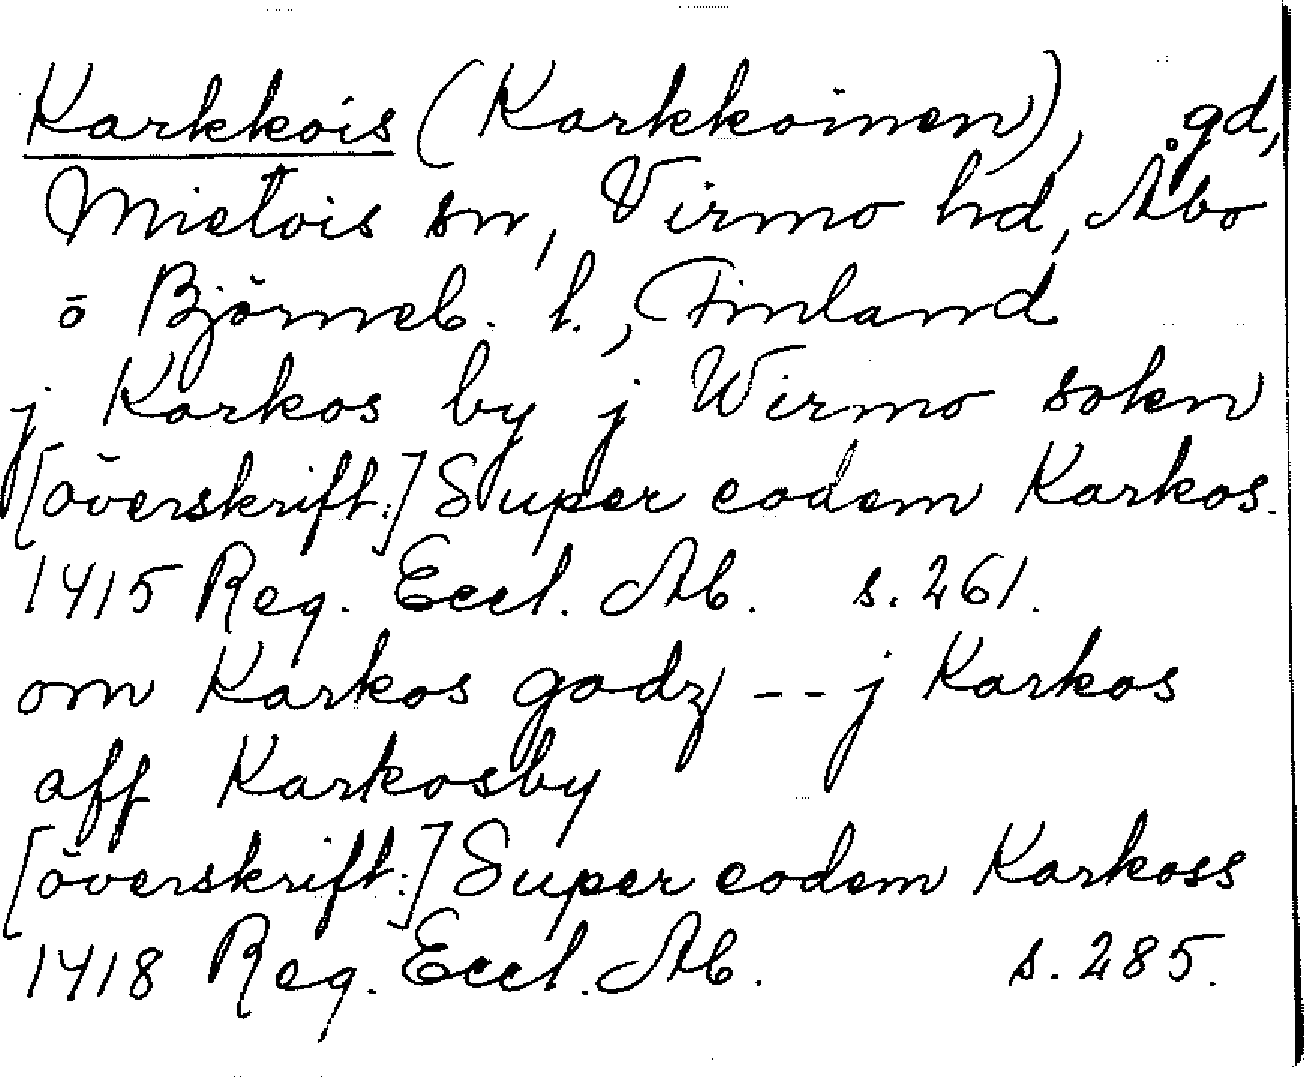 Karkkois (Karkkoinen), gd,
Mietois sn, Virmo hd, Åbo
o Björneb. l., Finland
j Karkos by j Wirmo sokn
[överskrift:] Super eodem Karkos.
1415 Reg. Eccl. Ab. s. 261.
om Karkos godz -- j Karkos
aff Karkosby
[överskrift:] Super eodem Karkoss
1418 Reg. Eccl. Ab. s. 285.